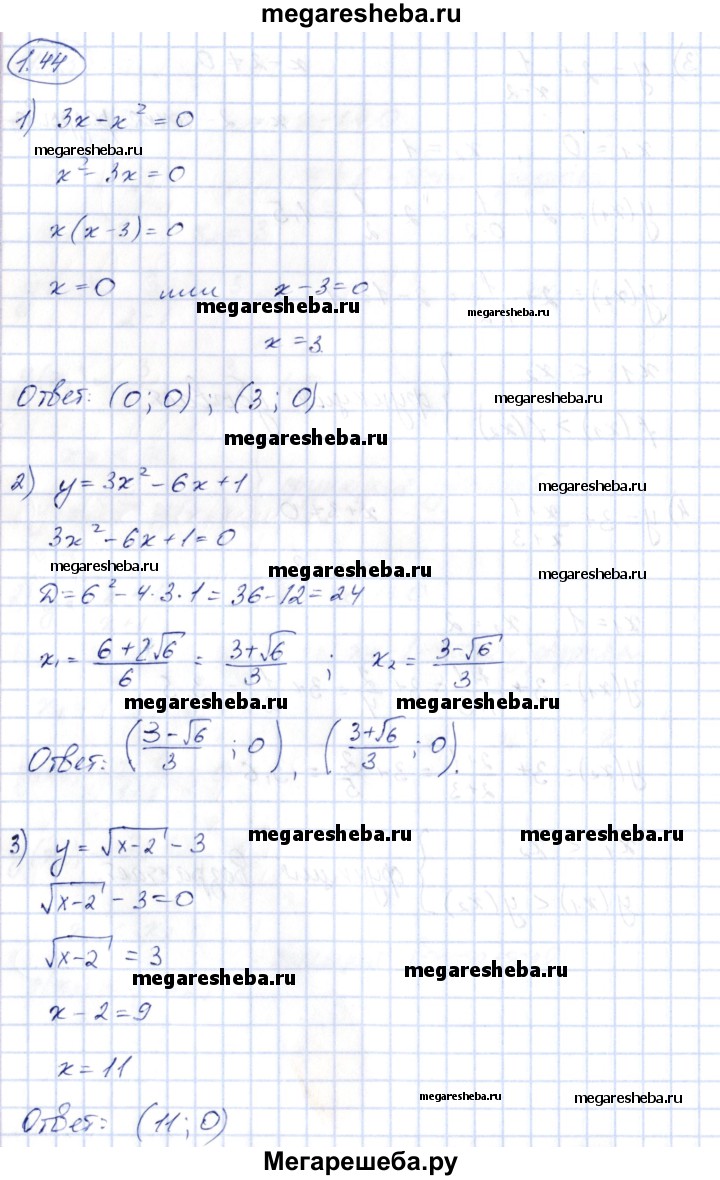 megaresheba.ru
1.44
1) 3x-x²=0
megaresheba.ru
x²-3x=0
x(x-3)=0
x=0 или x-3=0
megaresheba.ru megaresheba.ru
x=3
Ответ: (0;0); (3;0).
megaresheba.ru
2) y=3x²-6x+1
megaresheba.ru
3x²-6x+1=0
megaresheba.ru megaresheba.ru megaresheba.ru
Д=6²-4·3·1=36-12=24
x₁=(6+2√6)/6=(3+√6)/3; x₂=(3-√6)/3
megaresheba.ru megaresheba.ru
Ответ: ((3-√6)/3;0), ((3+√6)/3;0).
3) y=√(x-2)-3
megaresheba.ru megaresheba.ru
√(x-2)-3=0
√(x-2)=3
megaresheba.ru megaresheba.ru
x-2=9
x=11
megaresheba.ru megaresheba.ru
Ответ: (11;0)
Мегарешеба.ру